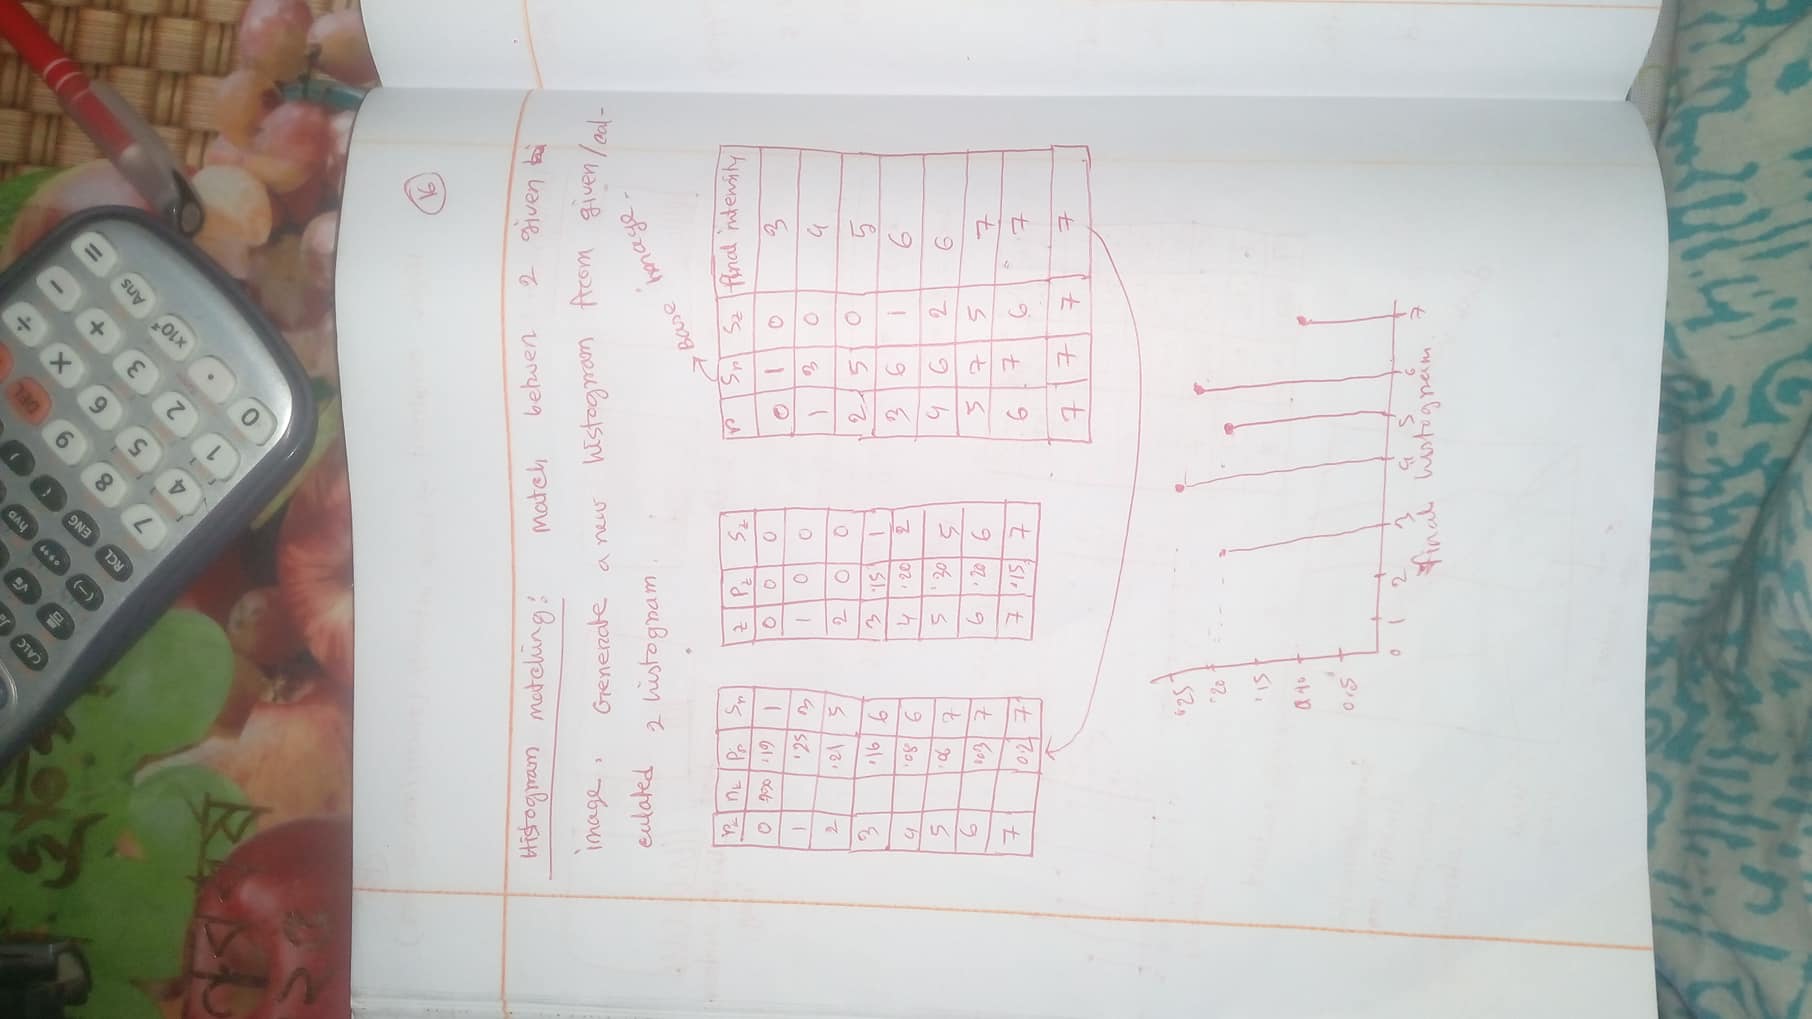 16
Histogram matching: match betwen 2 given
image. Generate a new histogram from given/cal-
culated 2 histogram.
Base image.
rₖ nₖ Pr Sr
0 790 .19 1
1 .25 3
2 .21 5
3 .16 6
4 .08 6
5 .06 7
6 .03 7
7 0.2 7
z Pz Sz
0 0 0
1 0 0
2 0 0
3 .15 1
4 .20 2
5 .30 5
6 .20 6
7 .15 7
r Sr Sz final intensity
0 1 0 3
1 3 0 4
2 5 0 5
3 6 1 6
4 6 2 6
5 7 5 7
6 7 6 7
7 7 7 7
.25
.20
.15
0.10
0.5
0 1 2 3 4 5 6 7
final histogram
CALC
RCL ENG ( )
hyp
(-) °'"
7 8 9 DEL
4 5 6 × ÷
1 2 3 + −
0 . ×10ˣ Ans =